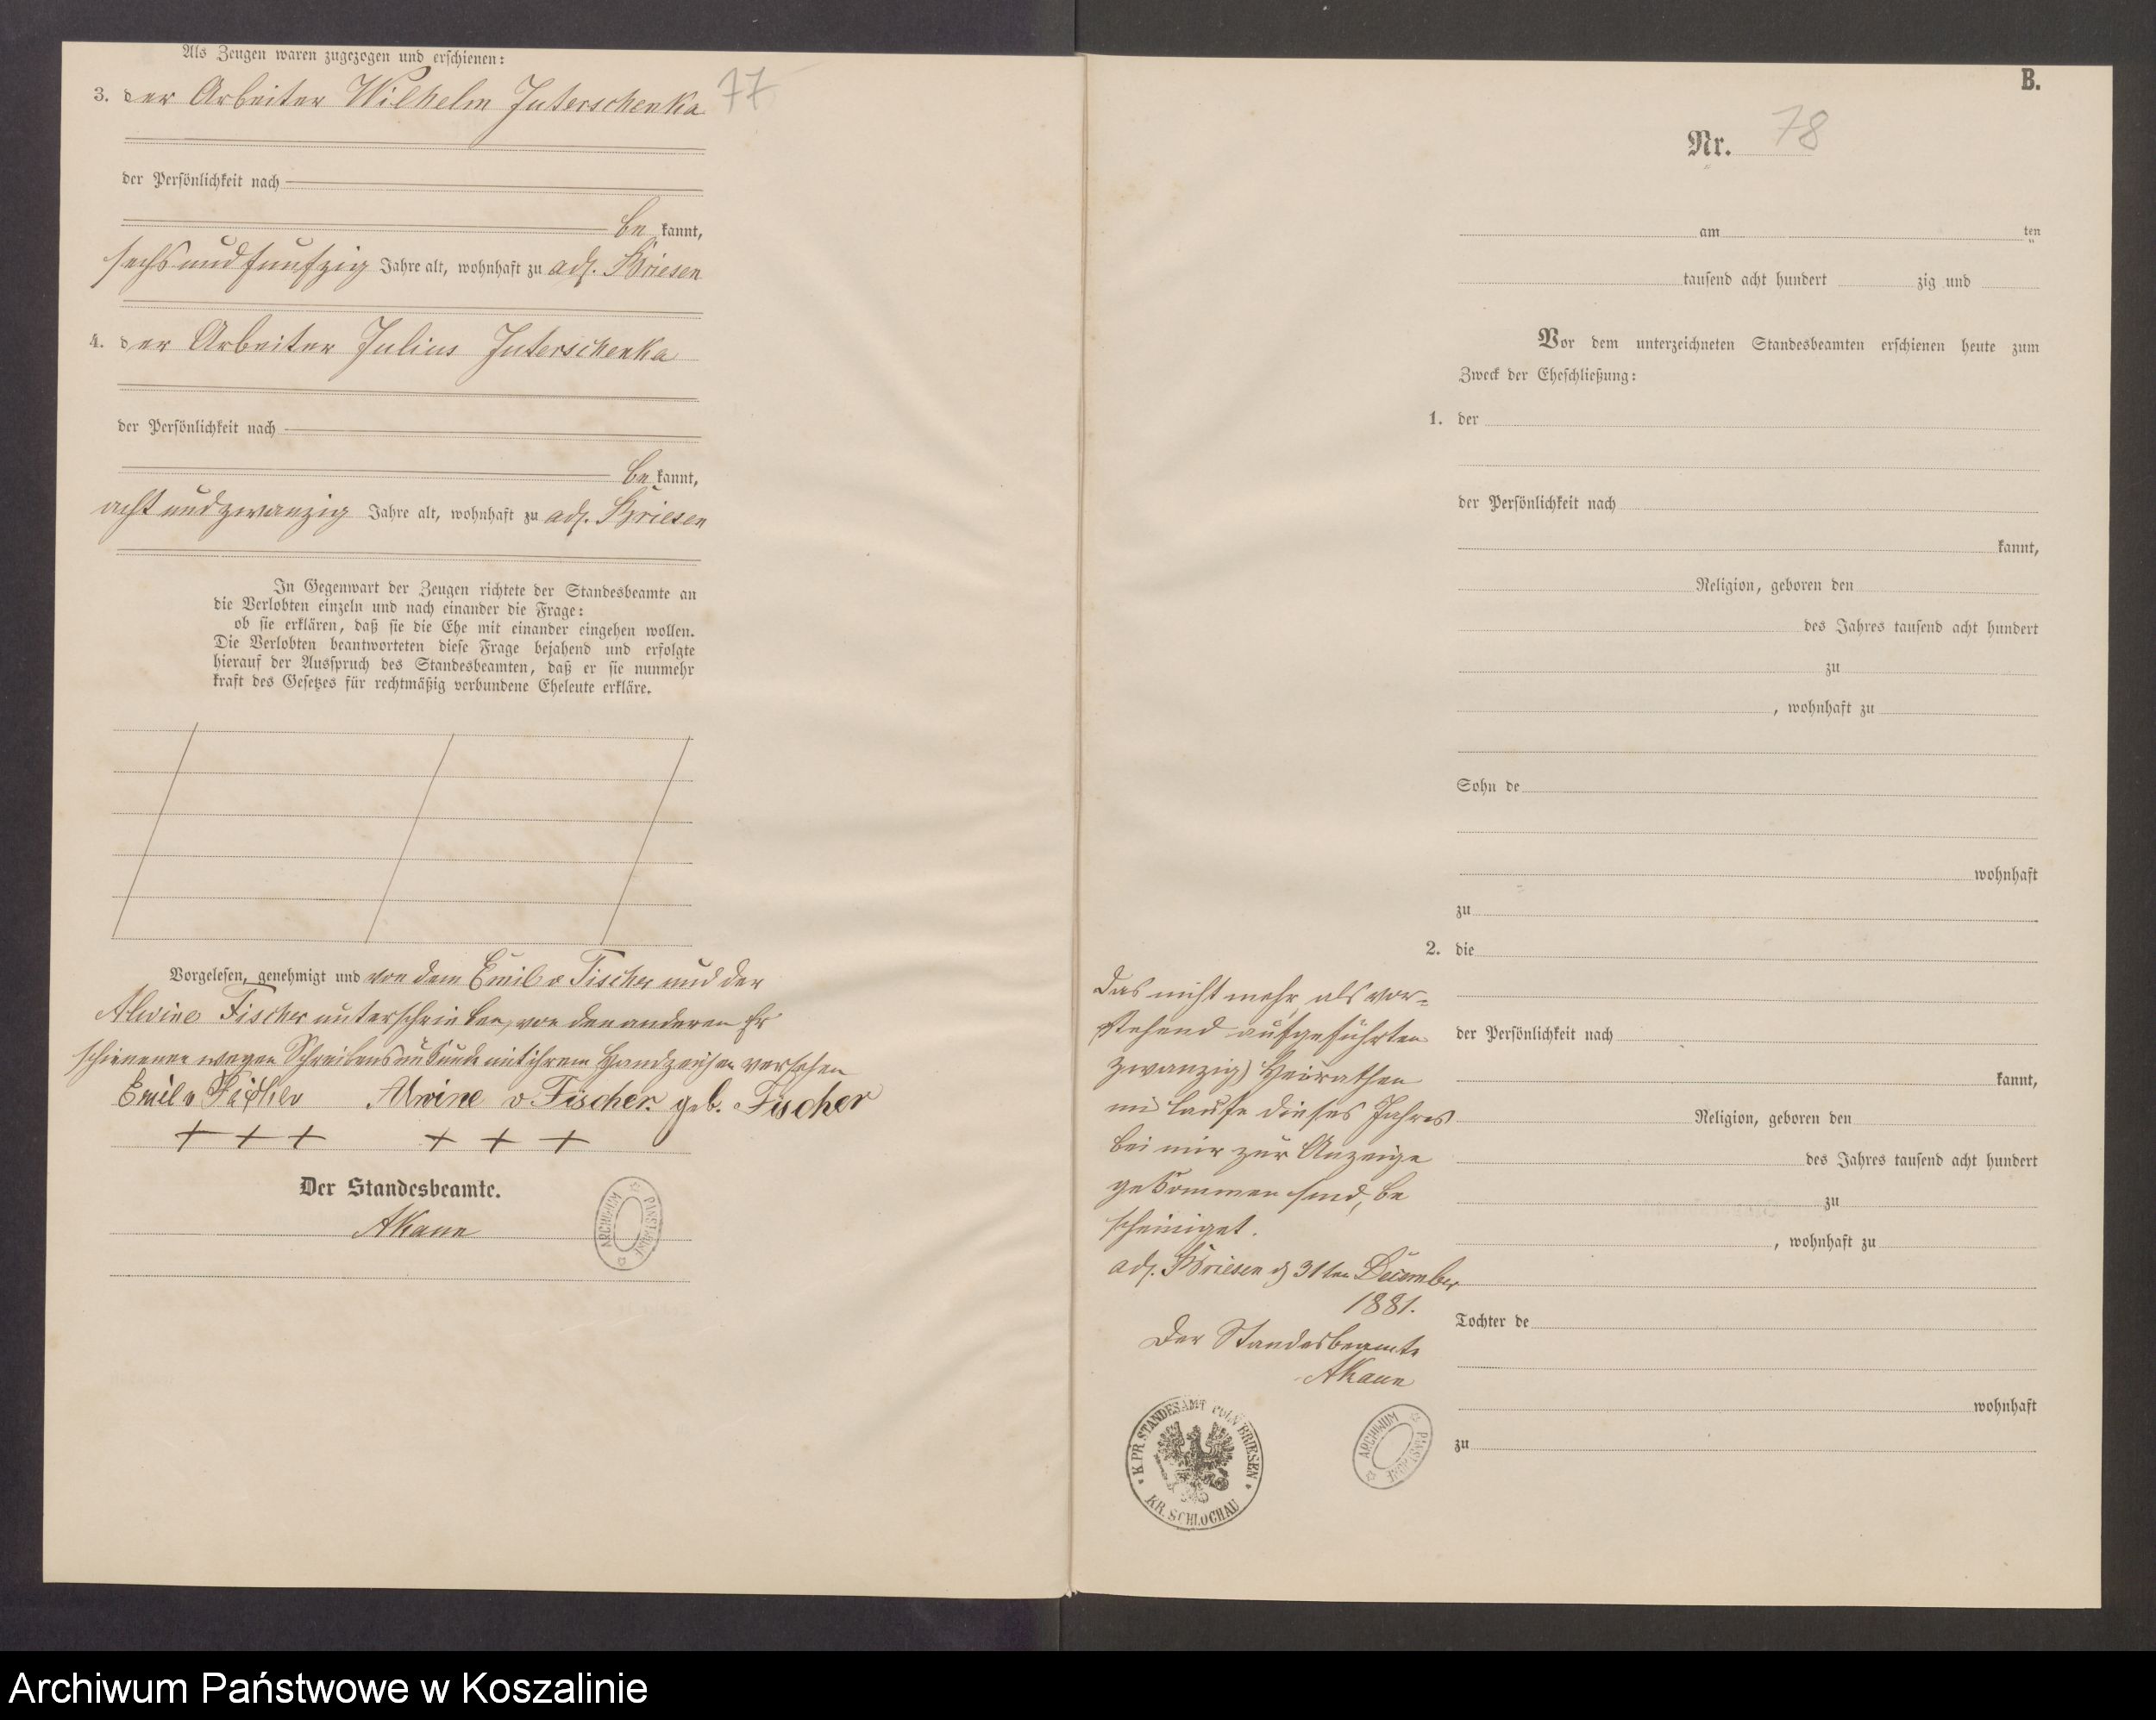 Als Zeugen waren zugezogen und erschienen:
77
3. der Arbeiter Wilhelm Juterschenka
der Persönlichkeit nach
be kannt,
sechsundfunfzig Jahre alt, wohnhaft zu adl. Briesen
4. der Arbeiter Julius Juterschenka
der Persönlichkeit nach
be kannt,
achtundzwanzig Jahre alt, wohnhaft zu adl. Briesen
In Gegenwart der Zeugen richtete der Standesbeamte an
die Verlobten einzeln und nach einander die Frage:
ob sie erklären, daß sie die Ehe mit einander eingehen wollen.
Die Verlobten beantworteten diese Frage bejahend und erfolgte
hierauf der Ausspruch des Standesbeamten, daß er sie nunmehr
kraft des Gesetzes für rechtmäßig verbundene Eheleute erkläre.
Vorgelesen, genehmigt und von dem Emil v Fischer und der
Alwine Fischer unterschrieben, von den anderen Er
schienenen wegen Schreibensunkunde mit ihrem Handzeichen versehen
Emil v Fischer Alwine v Fischer. geb. Fischer
+ + + + + +
Der Standesbeamte.
ARCHIWUM PAŃSTWOWE
B.
Nr. 78
am ten
tausend acht hundert zig und
Vor dem unterzeichneten Standesbeamten erschienen heute zum
Zweck der Eheschließung:
1. der
der Persönlichkeit nach
kannt,
Religion, geboren den
des Jahres tausend acht hundert
zu
, wohnhaft zu
Sohn de
wohnhaft
zu
2. die
der Persönlichkeit nach
kannt,
Religion, geboren den
des Jahres tausend acht hundert
zu
, wohnhaft zu
Tochter de
wohnhaft
zu
Das nicht mehr, als vor-
stehend aufgeführten
zwanzig) Heirathen
im Laufe dieses Jahres
bei mir zur Anzeige
gekommen sind, be
scheiniget.
adl. Briesen d 31ten December
1881.
Der Standesbeamte
K. PR. STANDESAMT POLN. BRIESEN
KR. SCHLOCHAU
ARCHIWUM PAŃSTWOWE
Archiwum Państwowe w Koszalinie